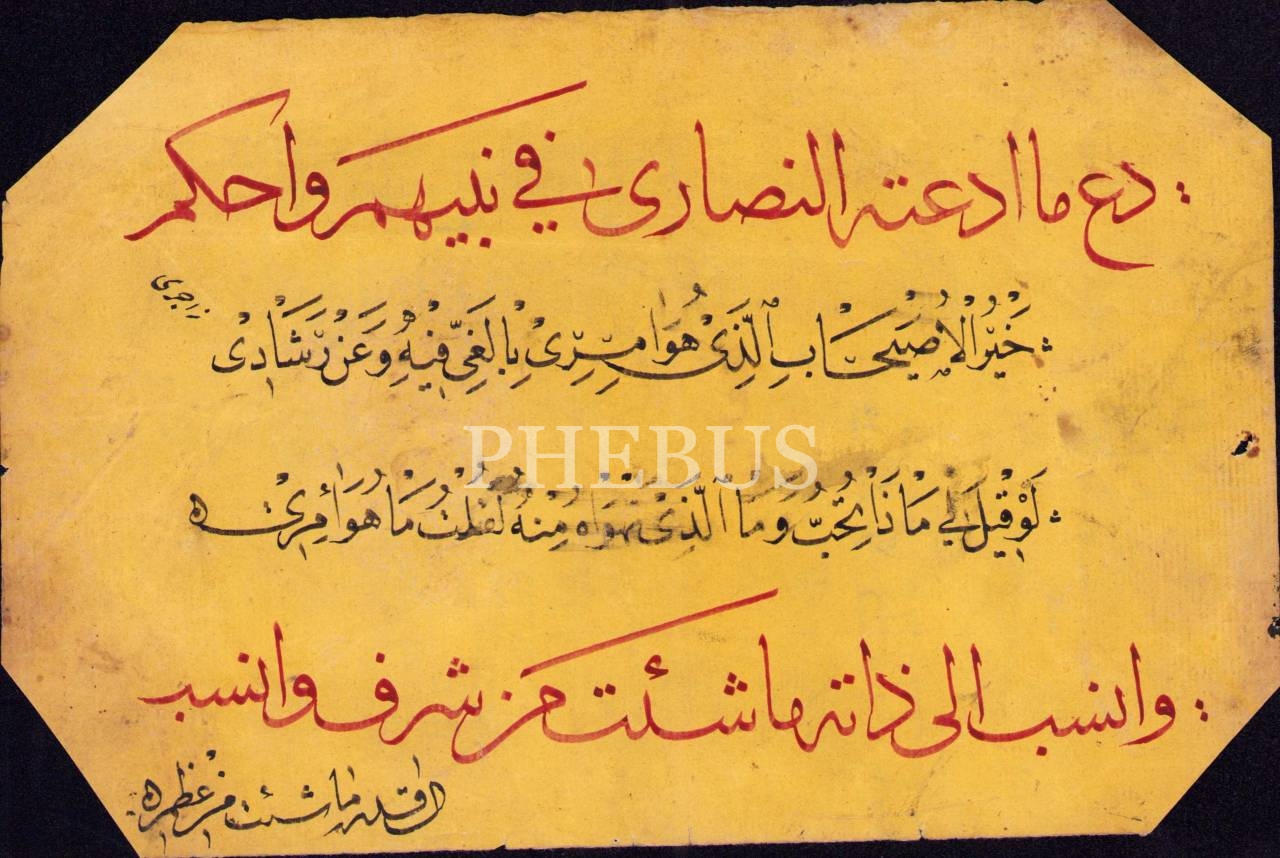 دع ما ادعته النصارى في نبيهم واحكم
خَيْرُ الْاَصْحَابِ الَّذِىْ هُوَ اٰمِرِىْ بِالْغَىِّ فِيْهِ وَعَنْ رَشَادِىْ
لَوْ قِيْلَ لِىْ مَاْذَاْ تُحِبُّ وَمَا الَّذِىْ تَهْوَاهُ مِنْهُ لَقُلْتُ مَاْ هُوَ اٰمِرِىْ
وانسب الى ذاته ما شئت من شرف وانسب
الى قدره ما شئت من عظم
PHEBUS